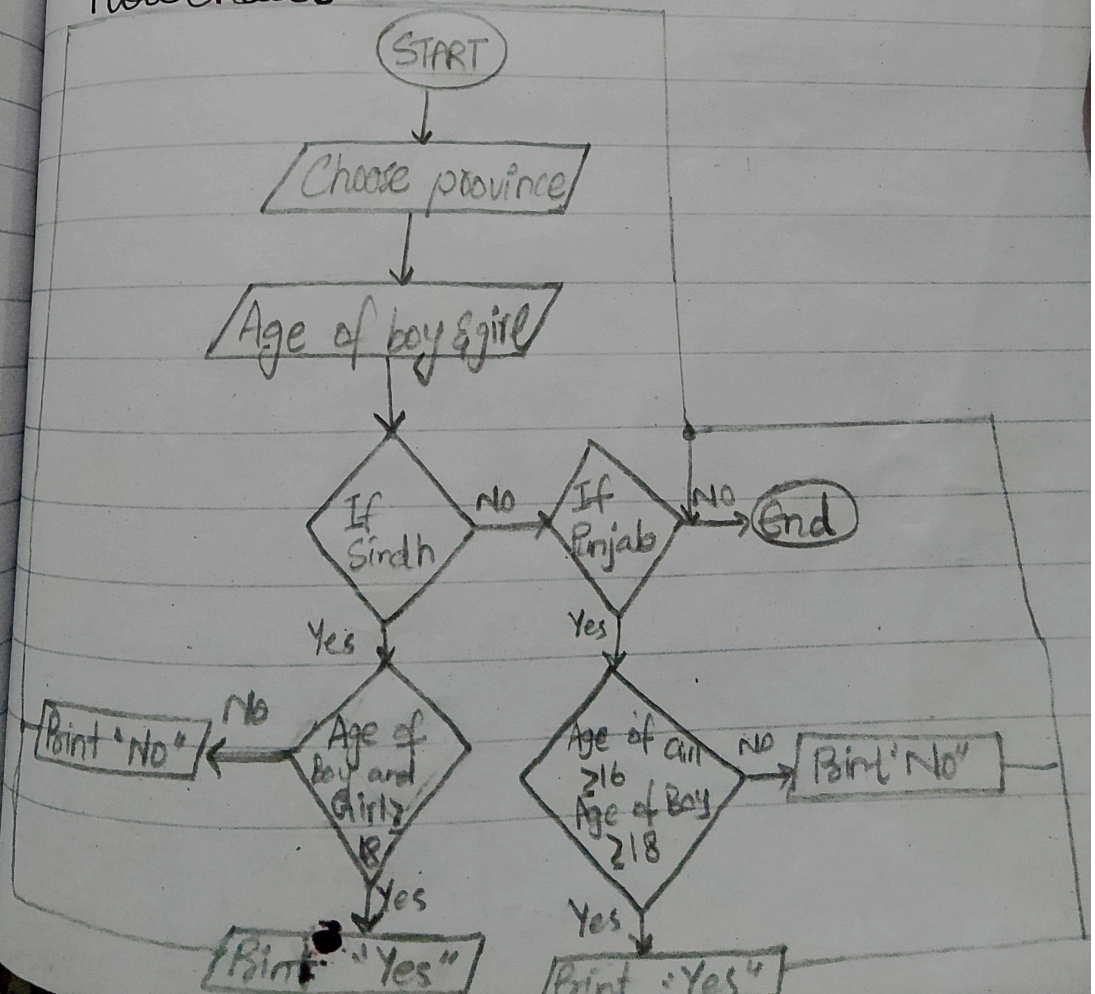 Flowchart
START
Choose province
Age of boy & girl
If
Sindh
No
If
Punjab
No
End
Yes
Yes
Print "No"
No
Age of
Boy and
Girl ≥
18
Age of Girl
≥16
Age of Boy
≥18
No
Print "No"
Yes
Yes
Print "Yes"
Print "Yes"